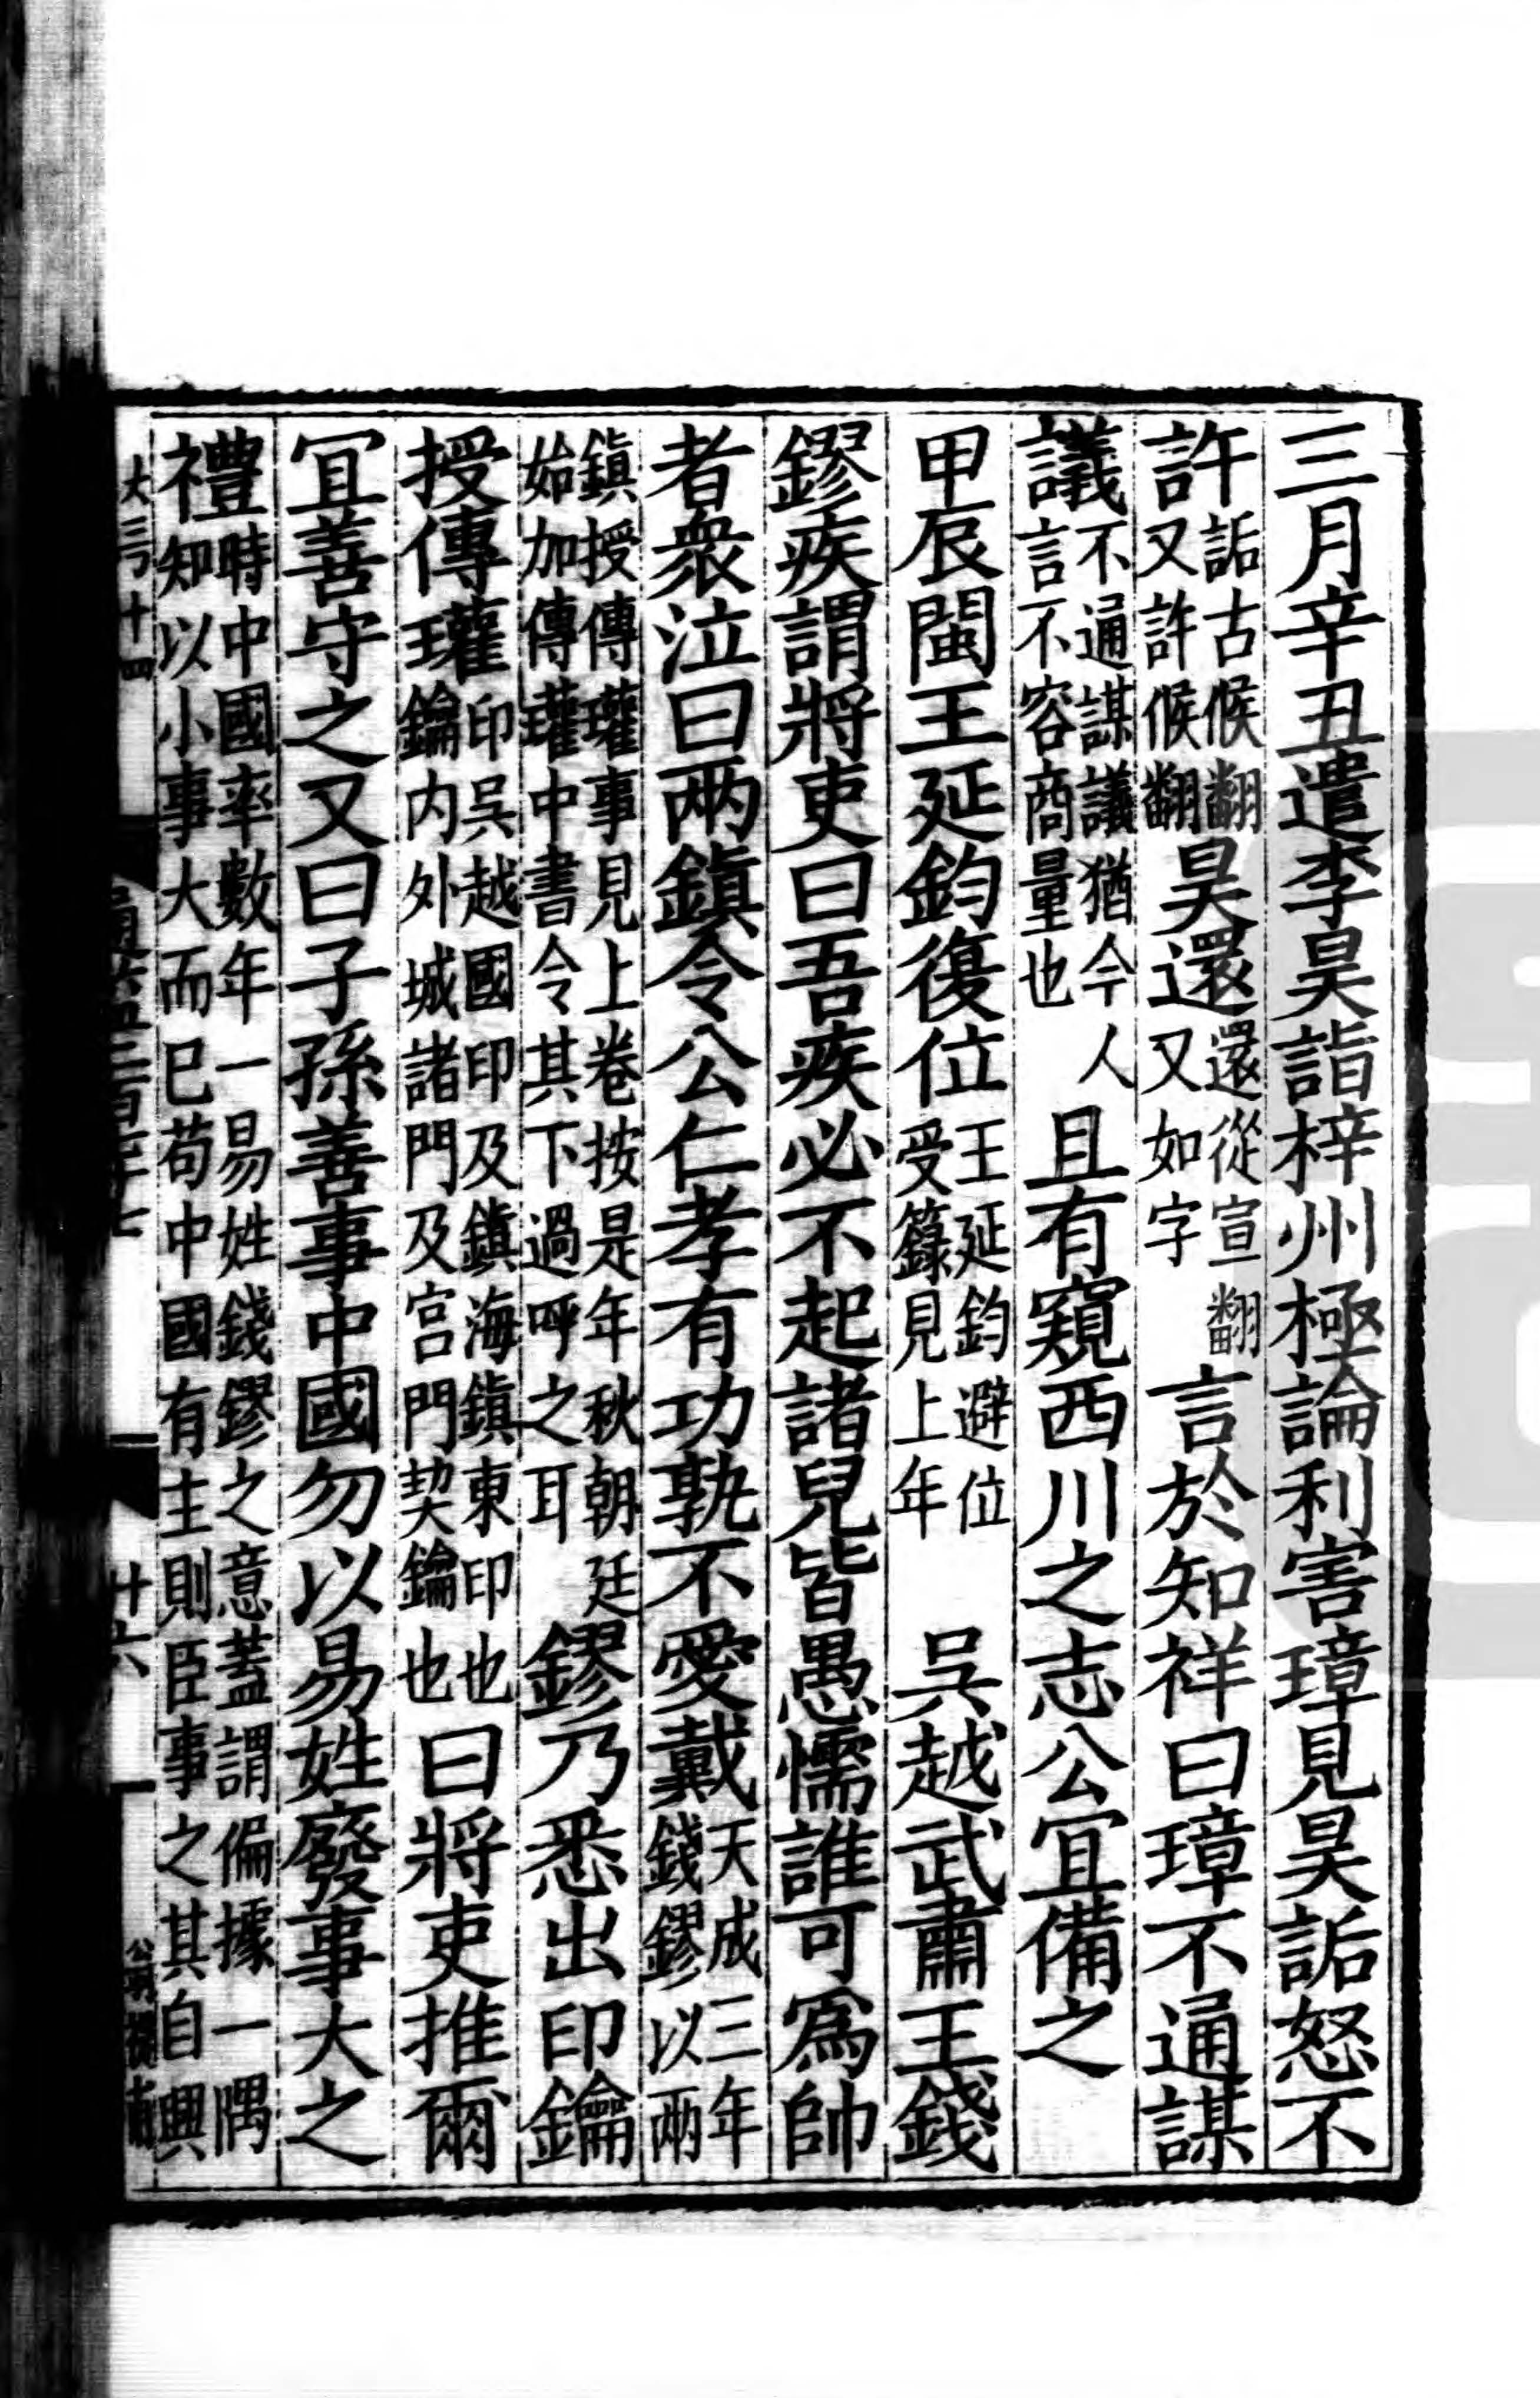 三月辛丑遣李昊詣梓州極論利害璋見昊詬怒不
許詬古候翻又許候翻昊還還從宣翻又如字言於知祥曰璋不通謀
議不通謀議猶今人言不容商量也且有窺西川之志公宜備之
甲辰閩王延鈞復位王延鈞避位受籙見上年 吳越武肅王錢
鏐疾謂將吏曰吾疾必不起諸兒皆愚懦誰可爲帥
者衆泣曰兩鎭令公仁孝有功孰不愛戴天成三年錢鏐以兩
鎭授傳瓘事見上卷按是年秋朝廷始加傳瓘中書令其下過呼之耳鏐乃悉出印鑰
授傳瓘印吳越國印及鎭海鎭東印也鑰内外城諸門及宫門契鑰也曰將吏推爾
宜善守之又曰子孫善事中國勿以易姓廢事大之
禮時中國率數年一易姓錢鏐之意蓋謂偏據一隅知以小事大而已苟中國有主則臣事之其自興
大三弓十四
二百七十七
廿六